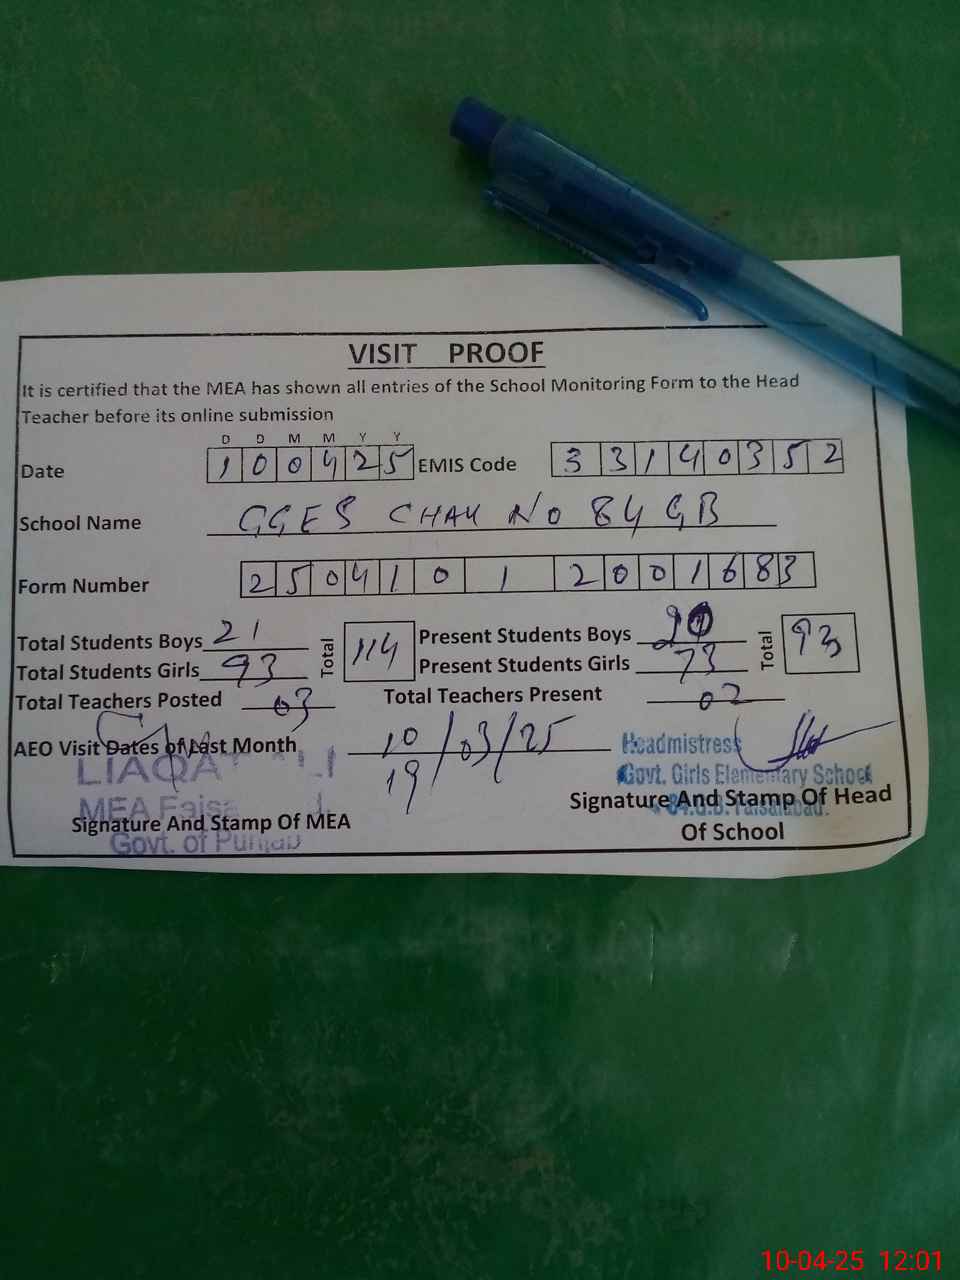 VISIT PROOF
It is certified that the MEA has shown all entries of the School Monitoring Form to the Head
Teacher before its online submission
D D M M Y Y
Date 1 0 0 4 2 5 EMIS Code 3 3 1 4 0 3 5 2
School Name GGES CHAK NO 84 GB
Form Number 2 5 0 4 1 0 1 2 0 0 1 6 8 3
Total Students Boys 21 Total 114 Present Students Boys Total 93
Total Students Girls 93 Present Students Girls 73
Total Teachers Posted 03 Total Teachers Present 02
AEO Visit Dates of Last Month 10/03/25
19
LIAQAT ALI
MEA
Govt. of Punjab
Signature And Stamp Of MEA
Headmistress
Govt. Girls Elementary School
84.G.B. Faisalabad.
Signature And Stamp Of Head
Of School
10-04-25 12:01